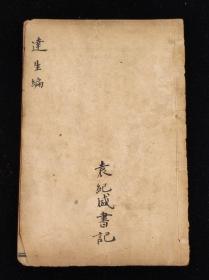 達生編
袁紀成書記